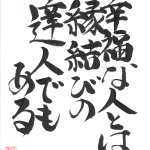 幸福な人とは
縁結びの
達人でも
ある